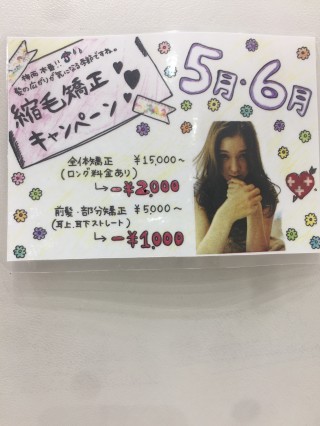 梅雨本番!!
髪の広がりが気になる季節ですね。
縮毛矯正
キャンペーン
5月・6月
全体矯正 ¥15,000～
(ロング料金あり)
→ー¥2,000
前髪・部分矯正 ¥5,000～
(耳上、耳下ストレート)
→ー¥1,000